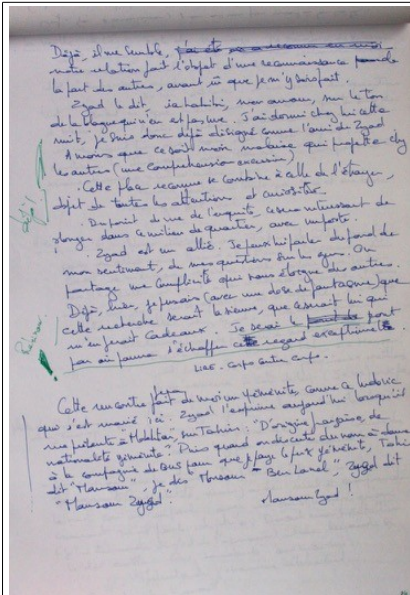 Déjà, il me semble,
notre relation fait l'objet d'une reconnaissance de
la part des autres, avant même que je m'y sois fait.
Zyad le dit, ia habibi, mon amour, sur le ton
de la blague qui n'en est pas une. J'ai dormi chez lui cette
nuit, je suis donc déjà désigné comme l'ami de Zyad
A moins que ce soit mon malaise qui projette chez
les autres (une compréhension excessive)
. Cette place reconnue se combine à celle de l'étranger,
objet de toutes les attentions et curiosités.
. Du point de vue de l'enquête, ce sera intéressant de
plonger dans ce milieu de quartier, avec
. Zyad est un allié. Je peux lui parler du fond de
mon sentiment, de mes questions sur les gens. On
partage une complicité qui nous éloigne des autres.
Déjà, hier, je pensais (avec une dose de fantasme) que
cette recherche serait la sienne, que ce serait lui qui
m'en ferait cadeau. Je serai le pont
par où pourra s'échapper ce regard exceptionnel.
LIRE - Corps contre corps.
Cette rencontre fera de moi un yéménite, comme
qui s'est marié ici. Zyad l'exprime aujourd'hui lorsqu'il
me présente à Mokhtar, ou Tahir : "D'origine française, de
nationalité yéménite". Puis quand on discute du nom à donner
à la compagnie de bus pour que je paye le prix yéménite, Tahir
dit "Mansour", je dis "Mansour Ben", Zyad dit
"Mansour Zyad".
Mansour Zyad !